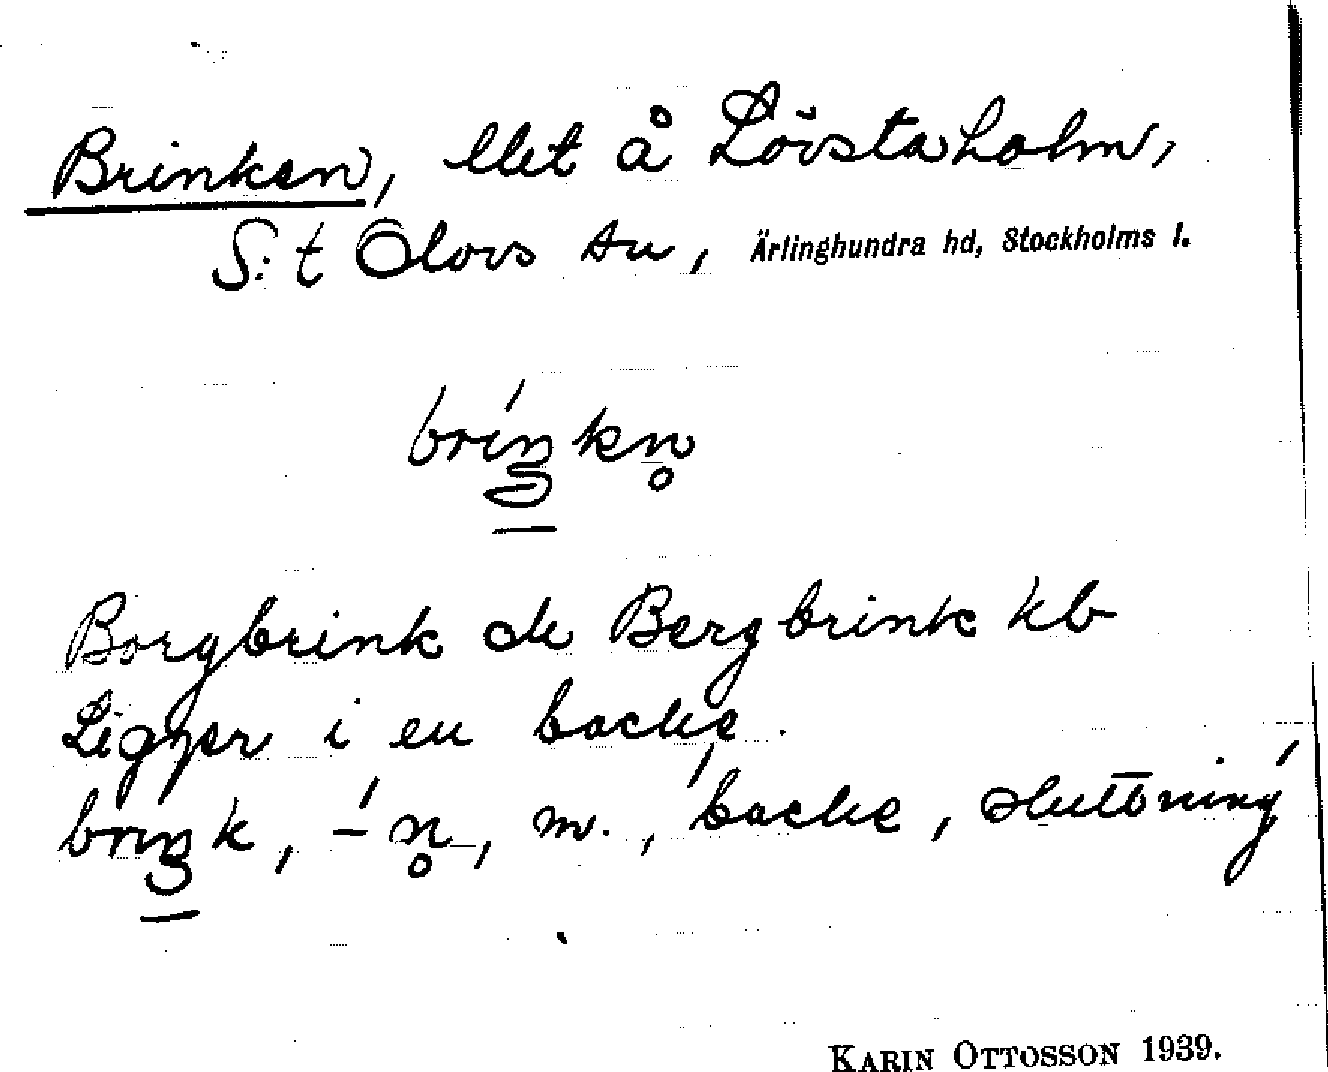 Brinken, llet å Lövstaholm,
S:t Olovs sn, Ärlinghundra hd, Stockholms l.
bríŋkn̥
Borgbrink de Bergbrink kb
Ligger i en backe.
briŋk, -́n̥, m., 'backe, sluttning'
KARIN OTTOSSON 1939.